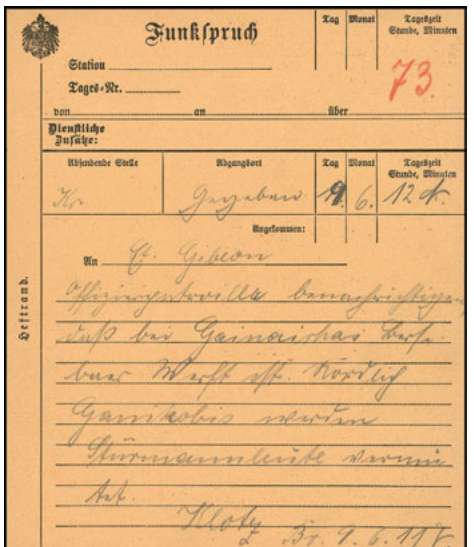 Funkspruch
Tag Monat Tageszeit
Stunde, Minuten
Station
Tages-Nr.
73.
von an über
Dienstliche
Zusätze:
Absendende Stelle Abgangsort Tag Monat Tageszeit
Stunde, Minuten
Kr. Gegeben 9. 6. 12
Angekommen:
An Et. Gibeon
Offizierpatrouille benachrichtigen
daß bei Gainaichas Berse-
baer Werft ist. Nördlich
Ganikobis werden
Stürmannleute vermu
tet.
Klotz
9. 6.
Heftrand.